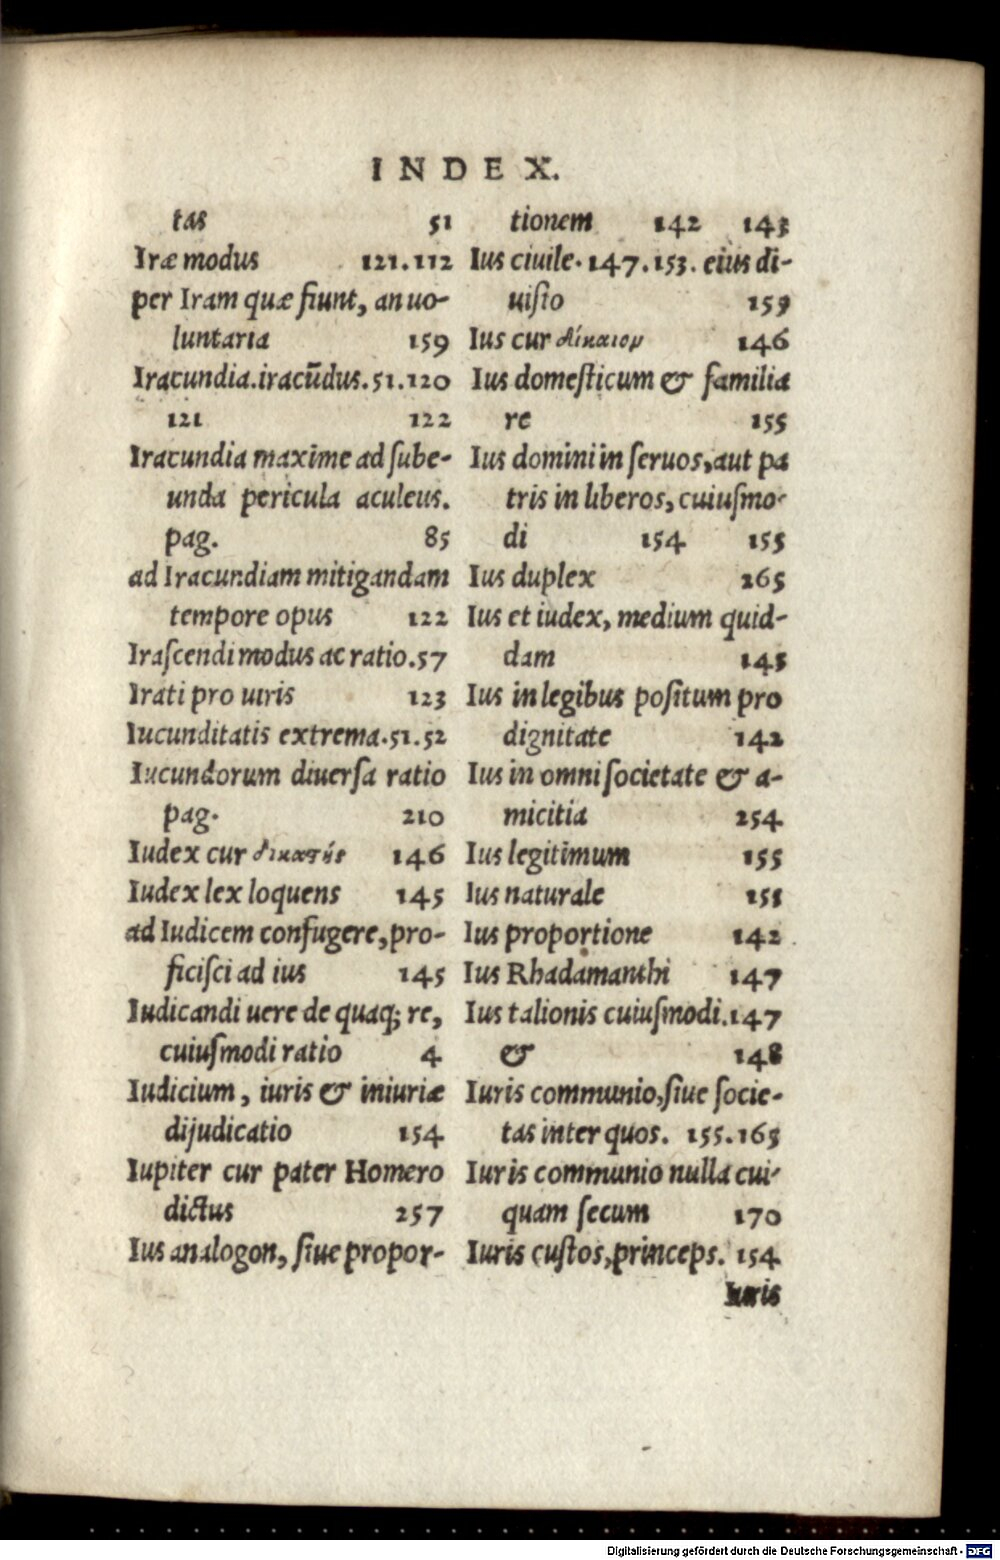 INDEX.
tas 51
Iræ modus 121.112
per Iram quæ fiunt, an uo-
luntaria 159
Iracundia.iracūdus.51.120
121 122
Iracundia maxime ad ſube-
unda pericula aculeus.
pag. 85
ad Iracundiam mitigandam
tempore opus 122
Iraſcendi modus ac ratio.57
Irati pro uiris 123
Iucunditatis extrema.51.52
Iucundorum diuerſa ratio
pag. 210
Iudex cur δικαστής 146
Iudex lex loquens 145
ad Iudicem confugere, pro-
ficiſci ad ius 145
Iudicandi uere de quaq; re,
cuiuſmodi ratio 4
Iudicium, iuris & iniuriæ
dijudicatio 154
Iupiter cur pater Homero
dictus 257
Ius analogon, ſiue propor-
tionem 142 143
Ius ciuile. 147.153. eius di-
uiſio 159
Ius cur δίκαιον 146
Ius domeſticum & familia
re 155
Ius domini in ſeruos, aut pa
tris in liberos, cuiuſmo-
di 154 155
Ius duplex 265
Ius et iudex, medium quid-
dam 145
Ius in legibus poſitum pro
dignitate 142
Ius in omni ſocietate & a-
micitia 254
Ius legitimum 155
Ius naturale 155
Ius proportione 142
Ius Rhadamanthi 147
Ius talionis cuiuſmodi.147
& 148
Iuris communio, ſiue ſocie-
tas inter quos. 155.165
Iuris communio nulla cui-
quam ſecum 170
Iuris cuſtos, princeps. 154
Iuris
Digitalisierung gefördert durch die Deutsche Forschungsgemeinschaft - DFG